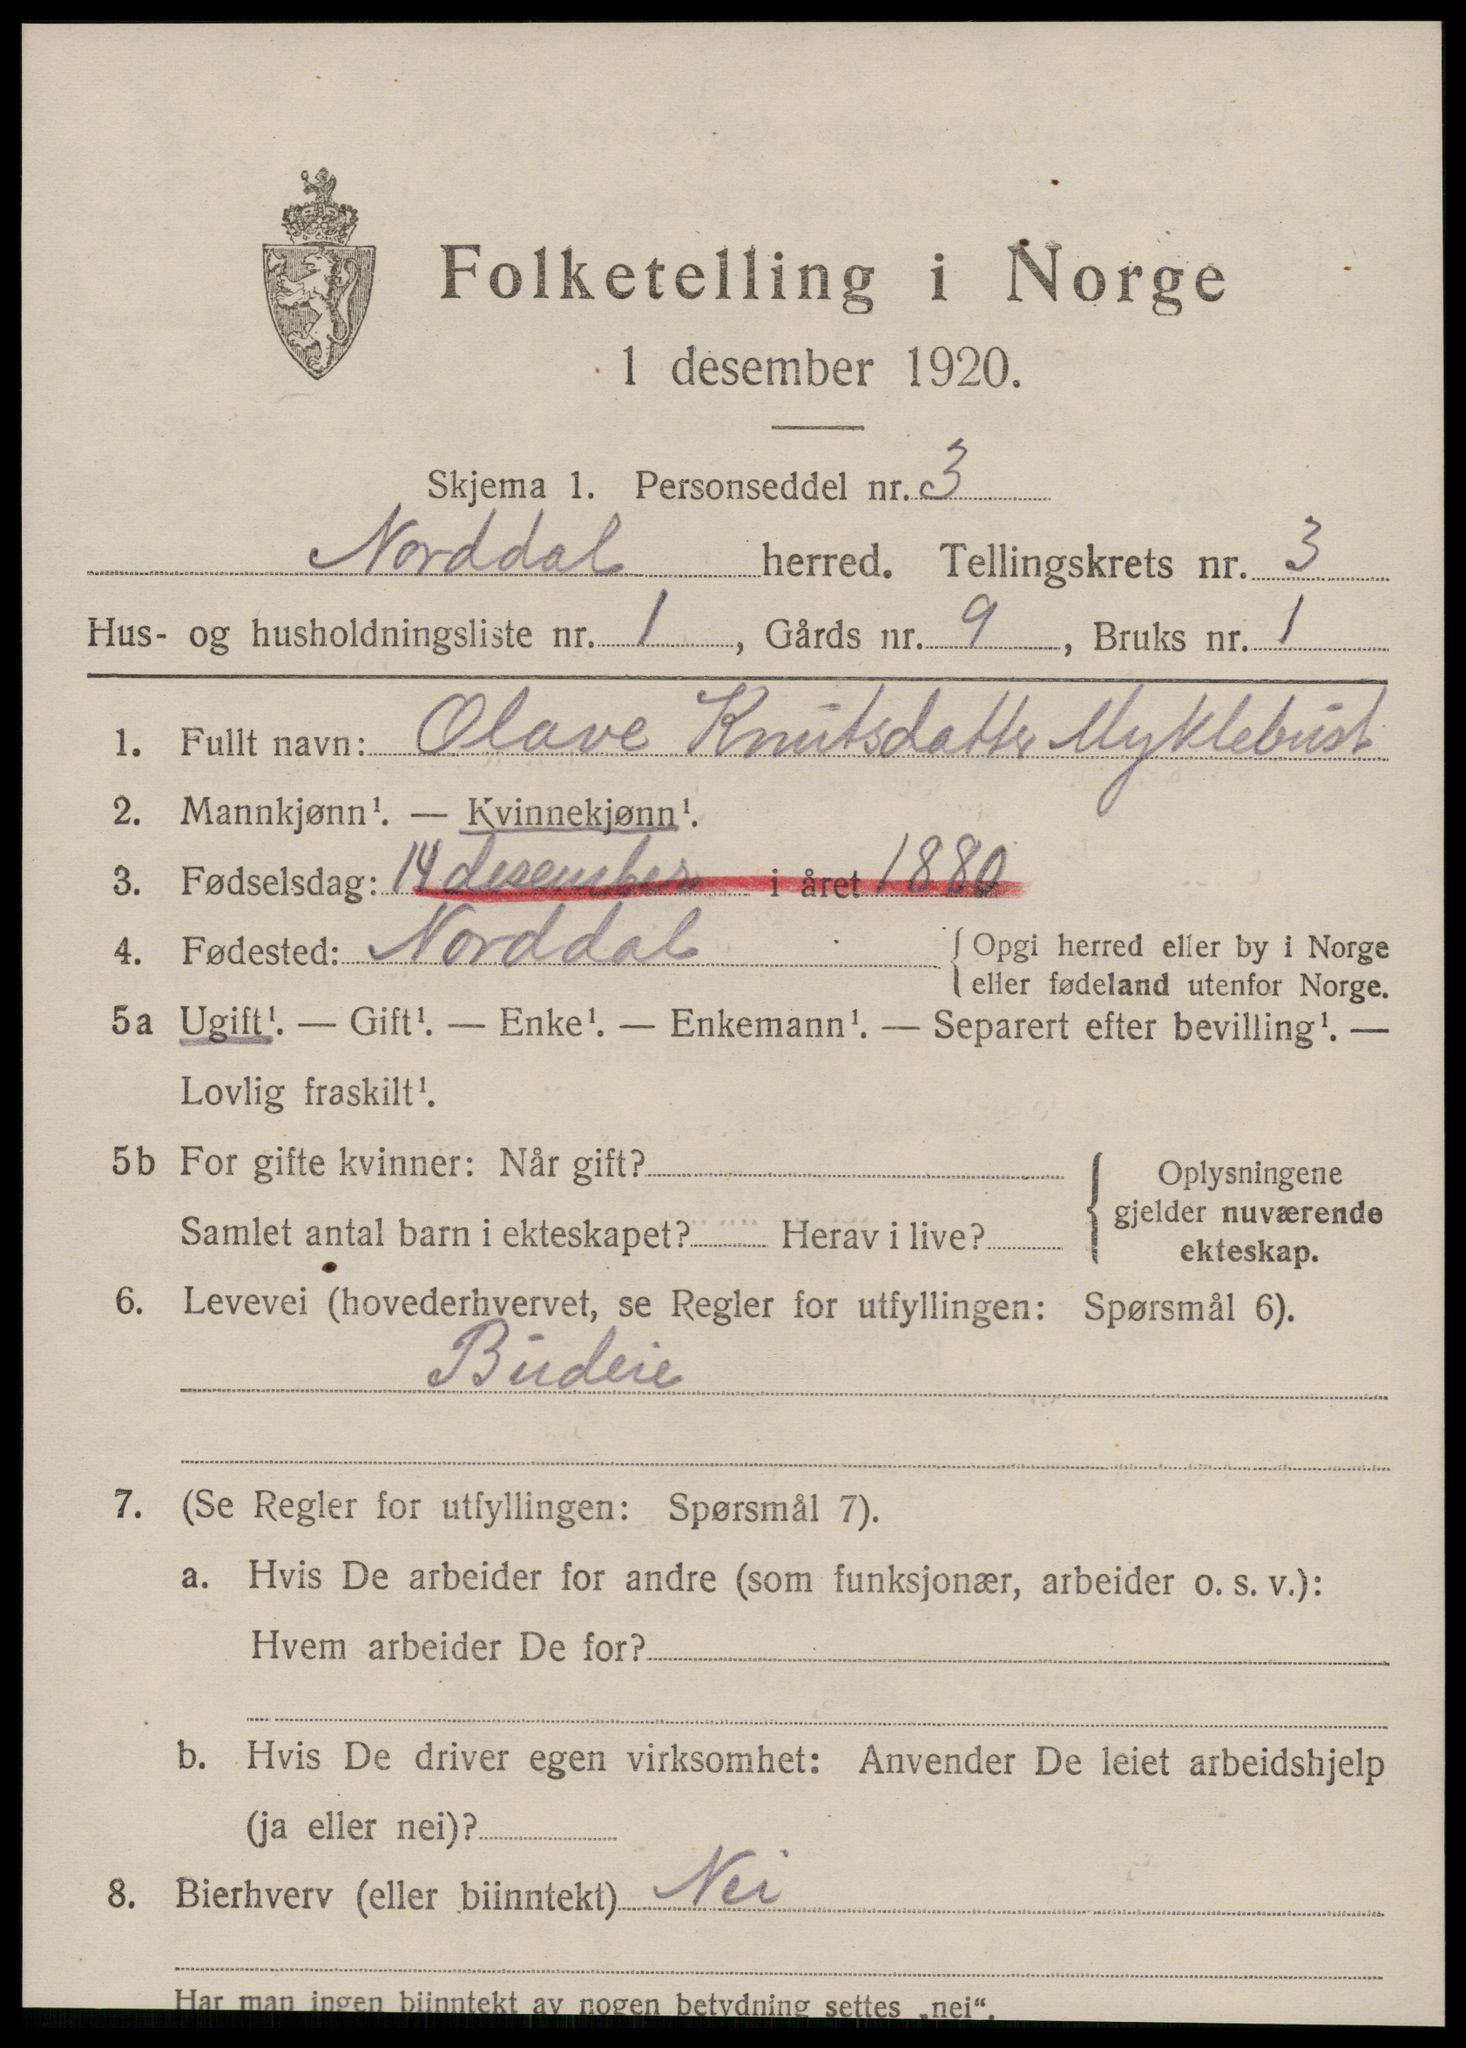 Folketelling i Norge
1 desember 1920.
Skjema 1. Personseddel nr. 3
Norddal herred. Tellingskrets nr. 3
Hus- og husholdningsliste nr. 1, Gårds nr. 9, Bruks nr. 1
1. Fullt navn: Olave Knutsdatter Myklebust
2. Mannkjønn¹. — Kvinnekjønn¹.
3. Fødselsdag: 14 desember i året 1880
4. Fødested: Norddal {Opgi herred eller by i Norge
eller fødeland utenfor Norge.
5a Ugift¹. — Gift¹. — Enke¹. — Enkemann¹. — Separert efter bevilling¹. —
Lovlig fraskilt¹.
5b For gifte kvinner: Når gift?
Samlet antal barn i ekteskapet? Herav i live?
{Oplysningene
gjelder nuværende
ekteskap.
6. Levevei (hovederhvervet, se Regler for utfyllingen: Spørsmål 6).
Budeie
7. (Se Regler for utfyllingen: Spørsmål 7).
a. Hvis De arbeider for andre (som funksjonær, arbeider o. s. v.):
Hvem arbeider De for?
b. Hvis De driver egen virksomhet: Anvender De leiet arbeidshjelp
(ja eller nei)?
8. Bierhverv (eller biinntekt) Nei
Har man ingen biinntekt av nogen betydning settes „nei“.